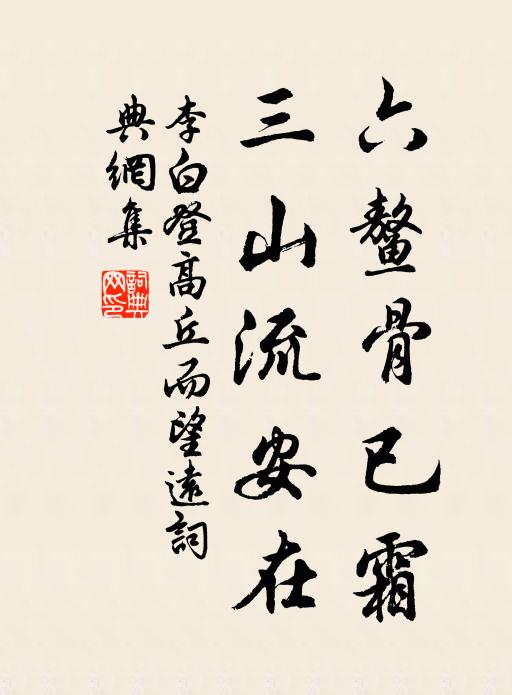 六鰲骨已霜
三山流安在
李白登高丘而望遠詞
典網集
詞典網印